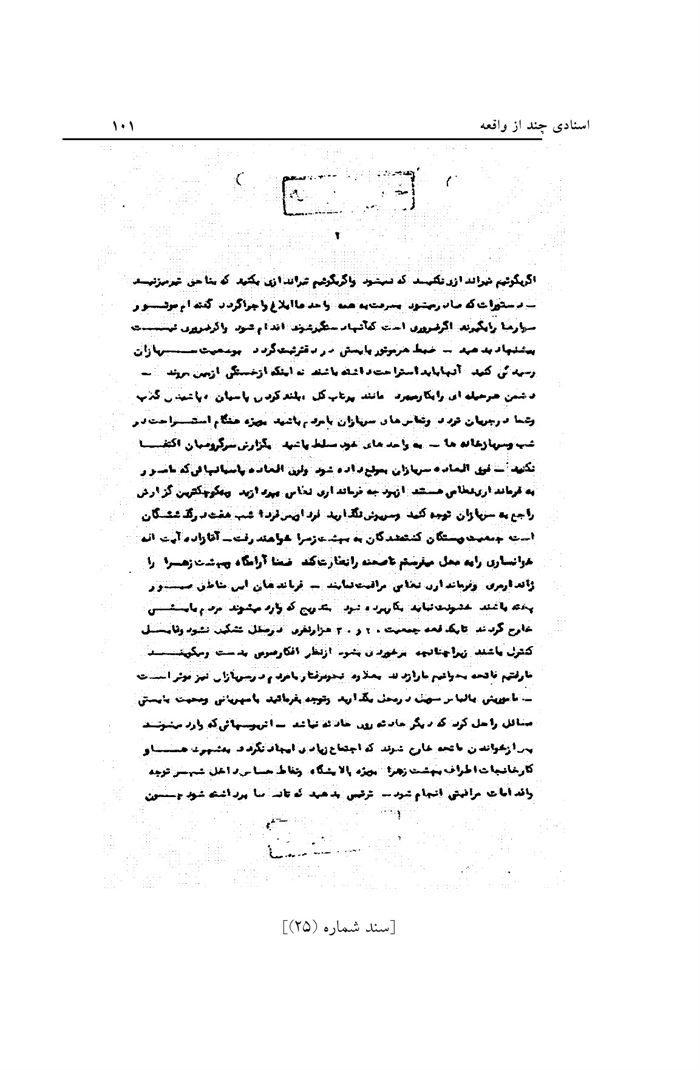 اسنادی چند از واقعه ۱۰۱
۲
اگربگوئیم تیراندازی نکنید که نمیشود واگربگوئیم تیراندازی بکنید که بناحق تیرمیزنید
– دستورات که صادرمیشود بسرعت به همه واحدها ابلاغ واجراگردد گفته ام موتور
سوارها رابگیرند اگرضروری است که آنها دستگیرشوند اقدام شود واگرضروری نیست
پیشنهاد بدهید – ضبط هرموتور بایستی در دفترثبت گردد بوضعیت سربازان
رسیدگی کنید آنها باید استراحت داشته باشند نه اینکه ازخستگی ازبین بروند –
دشمن هرحیله ای رابکارمیبرد مانند پرتاب گل ، بلند کردن پاسبان ،
وشما درجریان تردد وتماس های سربازان بامردم باشید بویژه هنگام استراحت در
شب وسربازخانه ها – به واحد های خود مسلط باشید بگزارش سرگروهبان اکتفا
نکنید – فوق العاده سربازان بموقع داده شود وفوق العاده پاسبانهائی که مامور
به فرمانداری نظامی هستند ازبودجه فرمانداری نظامی بپردازید وبکوچکترین گزارش
راجع به سربازان توجه کنید وسرپوش نگذارید فردا وپس فردا شب هفت درگذشتگان
است جمعیت وبستگان کشته شدگان به بهشت زهرا خواهند رفت – آقازاده آیت اله
خوانساری رابه محل میفرستم تاصحنه رانظارت کند ضمنا آرامگاه وبهشت زهرا را
ژاندارمری وفرمانداری نظامی مراقبت نمایند – فرماندهان این مناطق صبور و
پخته باشند خشونت نباید بکاربرده شود بتدریج که وارد میشوند مردم بایستی
خارج گردند تایکدفعه جمعیت ۲۰ و ۳۰ هزارنفری درمحل تشکیل نشود وقابل
کنترل باشند زیراچنانچه برخوردی بشود ازنظر افکارعمومی بد است ومیگویند
مارفتیم فاتحه بخوانیم مارازدند بعلاوه نحوه رفتار بامردم درسربازان نیز موثر است
– مامورینی بالباس سویل درمحل بگذارید وتوجه بفرمائید بامهربانی وصحبت بایستی
مسائل راحل کرد که دیگر حادثه روی حادثه نباشد – اتوبوسهائی که وارد میشوند
پس ازخواندن فاتحه خارج شوند که اجتماع زیادی ایجاد نگردد
کارخانجات اطراف بهشت زهرا بویژه پالایشگاه ونقاط حساس داخل شهر توجه
واقدامات مراقبتی انجام شود – ترتیبی بدهید که برداشته شود چون
[سند شماره (۲۵)]